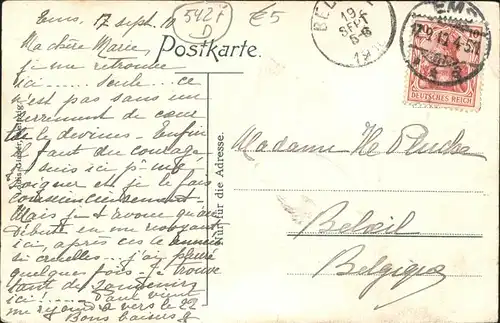 Ems, 17 sept. 10
542F
D
€5
Postkarte.
BEL
19
SEPT
5-6
19
EMS
17.9.10. 4-5
10
DEUTSCHES REICH
Ma chère Marie,
je me retrouve
ici ...... seule ... ce
n'est pas sans un
serrement de coeur
tu le devines. Enfin
il faut du courage
je suis ici pr me
soigner et je le fais
consciencieusement
Mais je t'avoue qu'au
début en me voyant
ici, après ces années
si cruelles ... j'ai pleuré
quelques fois - je trouve
tant de souvenirs
ici ...... Paul vient
me rejoindre vers le 22
Bons baisers
Nur für die Adresse.
Madame
Beloeil
Belgique